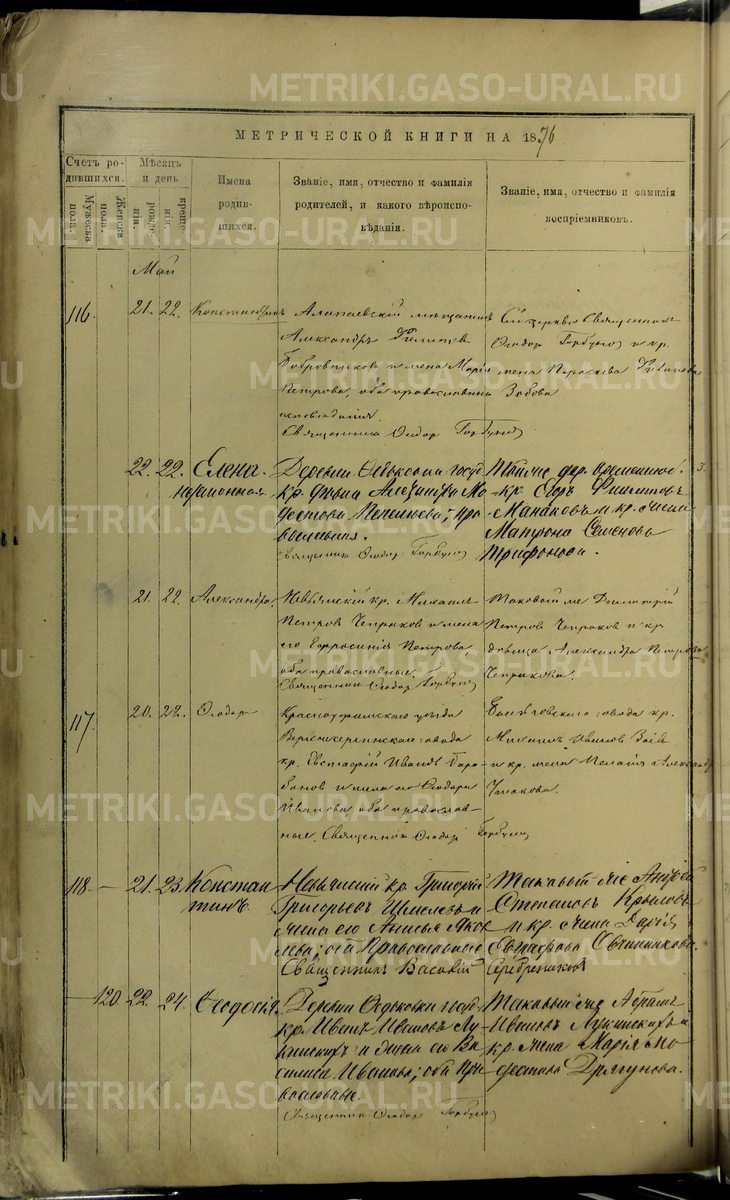 МЕТРИЧЕСКОЙ КНИГИ НА 1876
Счетъ родившихся.
Мужеска пола.
Женска пола.
Мѣсяцъ и день
рожденія.
крещенія.
Имена родившихся.
Званіе, имя, отчество и фамилія родителей, и какого вѣроисповѣданія.
Званіе, имя, отчество и фамилія воспріемниковъ.
Май
116. 21. 22. Константинъ
Алапаевскій мѣщанинъ
Александръ
Бобровниковъ и жена Марія
Петрова, оба православна
исповѣданія.
Священникъ Ѳеодор Горбуно
Священникъ
Ѳеодор Горбуно и кр.
жена Параскева
Зобова
22. 22. Елена.
незаконная.
Деревни Ѳедьковки госуд
кр. дѣвка Александра Мо-
дестова; пра
вославная.
Священник Ѳеодор Горбуно
Тойже дер. временноо.
кр. Егоръ Филиповъ
Манаковъ и кр. жена
Матрона Семенова
Трифонова.
21. 22. Александра.
Невьянскій кр. Михаилъ
Петров Чепраков и жена
его Ефросинія Петрова,
оба православные.
Священник Ѳеодор Горбуно
Таковой же Димитрій
Петров Чепраков и кр
дѣвица Александра Петрова
Чепракова.
117. 20. 22. Ѳеодоръ
Красноуфимскаго уѣзда
завода
кр. Евстафій Иванов
и жена его Ѳеодора
Иванова оба православ-
ные. Священник Ѳеодор Горбуно
завода кр.
Михаилъ Ивановъ
и кр. жена Пелагія
118. — 21. 23. Констан
тинъ.
Невьянскій кр. Григорій
Григорьевъ Шмелевъ и
жена его Анисья Яков
лева; оба Православные
Священникъ Василій Серебренников
Таковый же Андрей
Степановъ Крыловъ
и кр. жена Дарія
Овчинникова.
— 120 22. 24. Ѳеодосія.
Деревни Ѳедьковки госуд.
кр. Иванъ Ивановъ Лу-
кинскихъ и жена его Ва
силиса Иванова; оба пра
вославные.
Священник Ѳеодор Горбуно
Таковый же Абрамъ
Ивановъ Лукинскихъ и
кр. жена Марія Мо
дестова Дрягунова.
METRIKI.GASO-URAL.RU